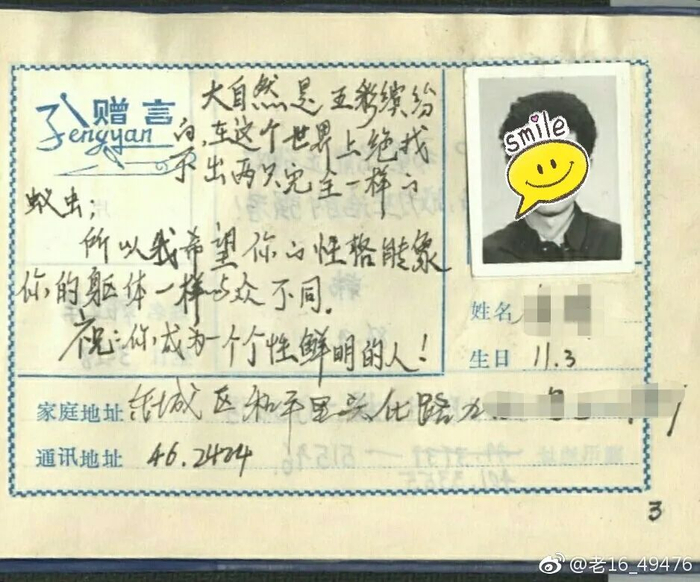 赠言
Zengyan
大自然是五彩缤纷
的,在这个世界上绝找
不出两只完全一样的
蚁虫;
所以我希望你的性格能象
你的躯体一样与众不同.
祝:你,成为一个个性鲜明的人!
smile
姓名
生日 11.3
家庭地址 东城区和平里兴化路
通讯地址 46.2484
3
@老16_49476